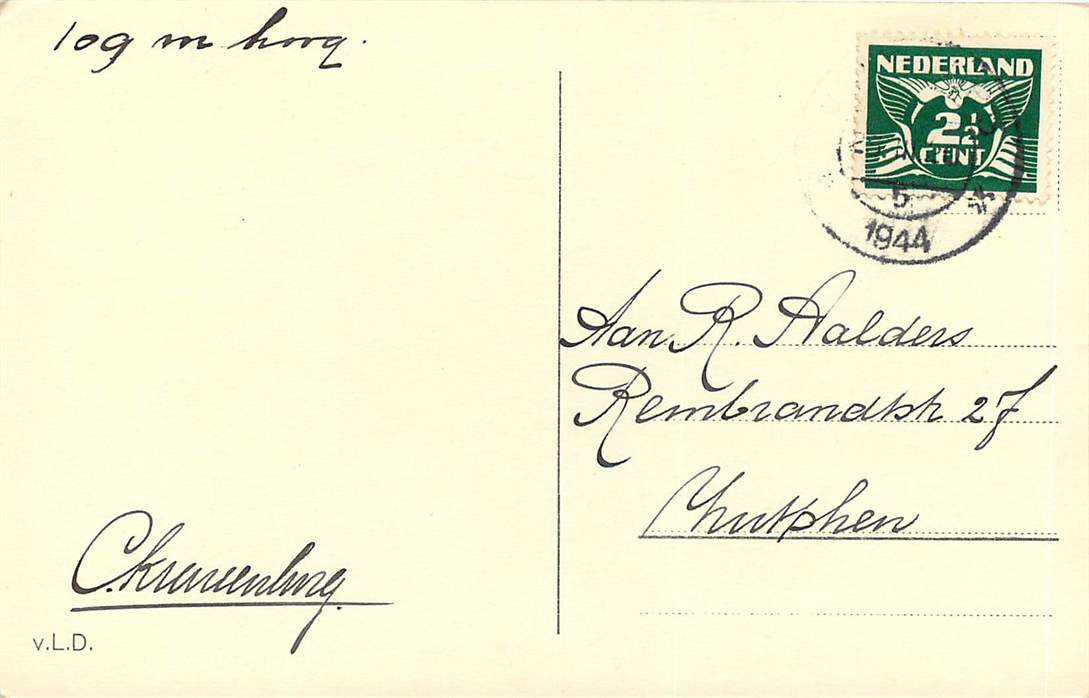 109 m hoog.
NEDERLAND
2½
CENT
5
1944
Aan R. Aalders
Rembrandtstr 27
Zutphen
C. Kranenburg.
v.L.D.